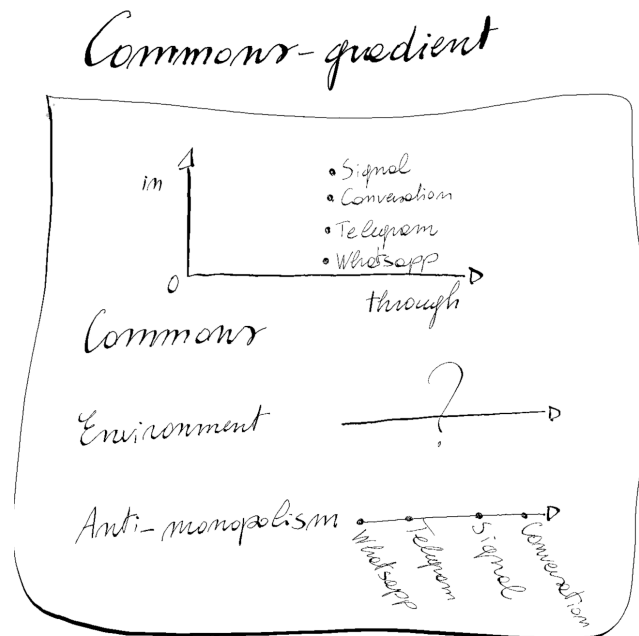 Commons-gradient
in
Signal
Conversation
Telegram
Whatsapp
0
through
Commons
Environment ?
Anti-monopolism
Whatsapp
Telegram
Signal
Conversation